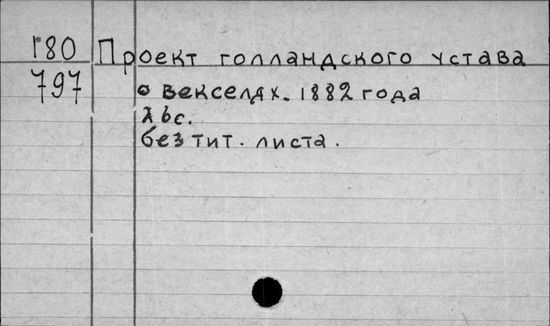 180 Проект голландского устава
797 о векселях. 1882 года
без тит. листа.